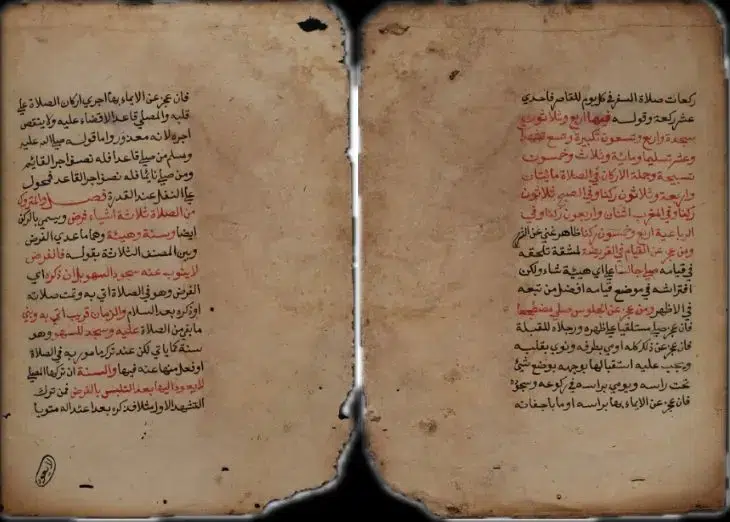 ركعات صلاة السفر في كل يوم للقاصر فاحدي
عشر ركعة وقوله فيها اربع وثلاثون
سجدة واربع وتسعون تكبيرة وتسع تشهدات
وعشر تسليمات ومائة وثلاث وخمسون
تسبيحة وجملة الاركان في الصلاة مائتان
واربعة وثلاثون ركنا وفي الصبح ثلاثون
ركنا وفي المغرب اثنان واربعون ركنا وفي
الرباعية اربع وخمسون ركنا ظاهر غني عن الشرح
ومن عجز عن القيام في الفريضة لمشقة تلحقه
في قيامه صلى جالسا على اي هيئة شاء ولكن
افتراشه في موضع قيامه افضل من تربعه
في الاظهر ومن عجز عن الجلوس صلى مضطجعا
فان عجز صلى مستلقيا على ظهره ورجلاه للقبلة
فان عجز عن ذلك كله اومى بطرفه ونوى بقلبه
ويجب عليه استقبالها بوجهه بوضع شئ
تحت راسه ويومي براسه في ركوعه وسجوده
فان عجز عن الايماء بها براسه اوما باجفانه
فان عجز عن الايماء بها اجري اركان الصلاة على
قلبه والمصلي قاعدا لا قضاء عليه ولا ينقص
اجره لانه معذور واما قوله صلى الله عليه
وسلم من صلى قاعدا فله نصف اجر القائم
ومن صلى نائما فله نصف اجر القاعد فمحمول
على النفل عند القدرة فصل والمتروك
من الصلاة ثلاثة اشياء فرض ويسمى بالركن
ايضا وسنة وهيئة وهما ما عدى الفرض
وبين المصنف الثلاثة بقوله فالفرض
لا ينوب عنه سجود السهو بل ان ذكره اي
الفرض وهو في الصلاة اتي به وتمت صلاته
او ذكره بعد السلام والزمان قريب اتى به وبنى
ما بقي من الصلاة عليه وسجد للسهو وهو
سنة كما ياتي لكن عند ترك مامور به في الصلاة
او فعل منها عنه فيها والسنة ان تركها المصلي
لا يعود اليها بعد التلبس بالفرض فمن ترك
التشهد الاول مثلا فذكره بعد اعتداله مستويا